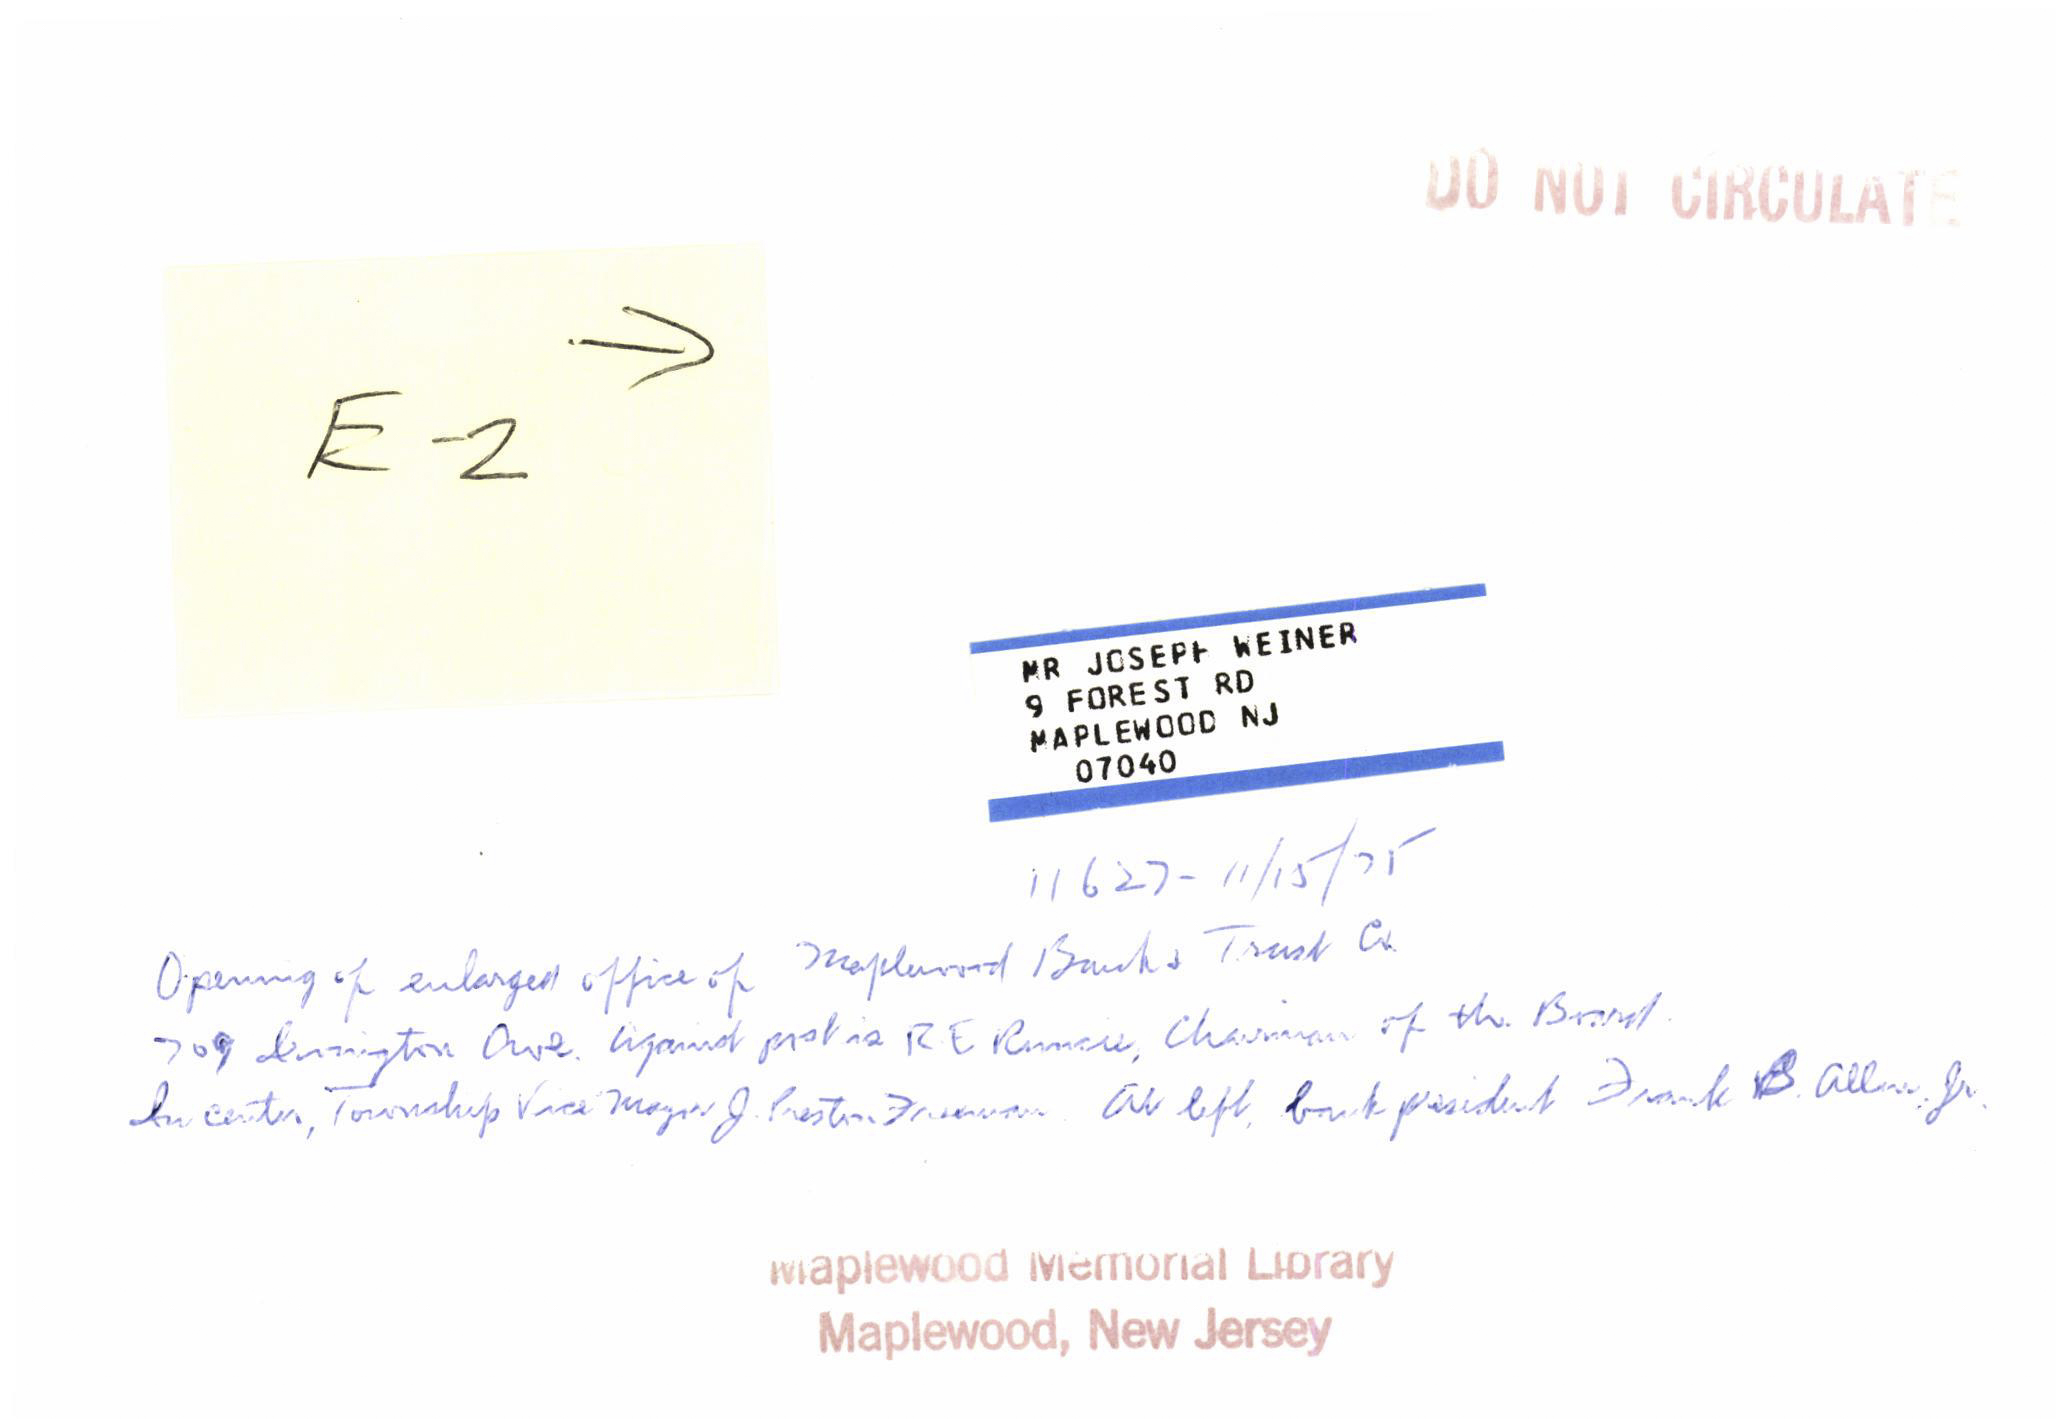 DO NOT CIRCULATE
→
E-2
MR JOSEPH WEINER
9 FOREST RD
MAPLEWOOD NJ
07040
11627- 11/15/75
Opening of enlarged office of Maplewood Bank & Trust Co.
709 Irvington Ave. Against post is R.E. Runcie, Chairman of the Board.
In center, Township Vice Mayor J. Preston Freeman. At left, bank president Frank B. Allen, Jr.
Maplewood Memorial Library
Maplewood, New Jersey